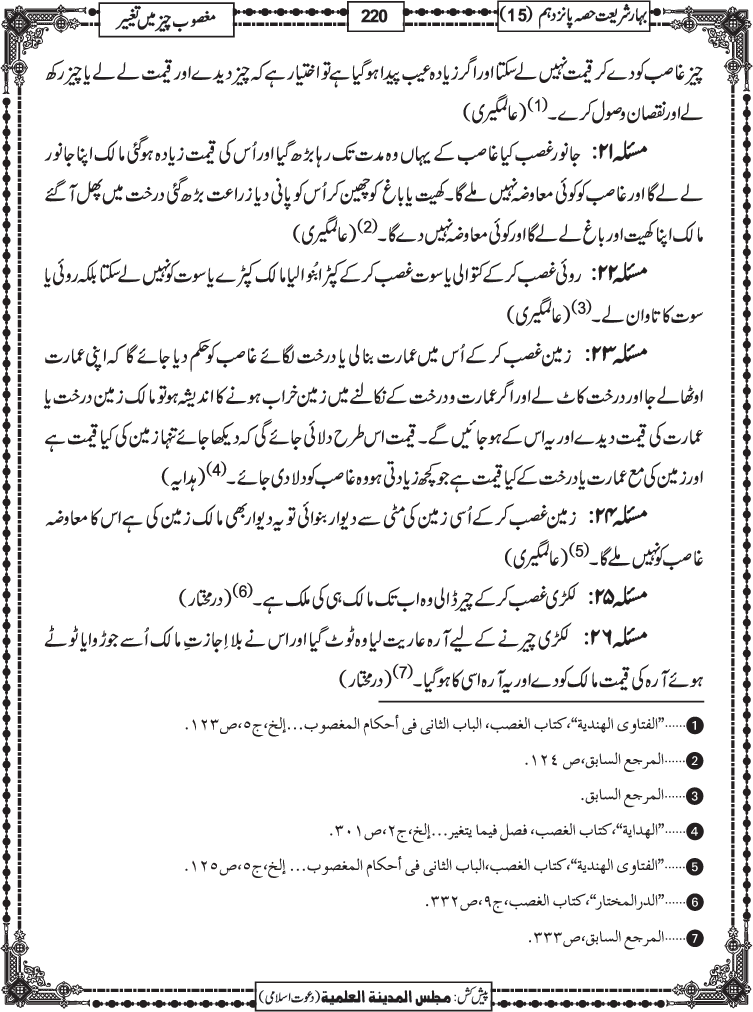 بہار شریعت حصہ پانزدہم (15)
220
مغصوب چیز میں تغییر
چیز غاصب کو دے کر قیمت نہیں لے سکتا اور اگر زیادہ عیب پیدا ہوگیا ہے تو اختیار ہے کہ چیز دیدے اور قیمت لے لے یا چیز رکھ
لے اور نقصان وصول کرے۔(1) (عالمگیری)
مسئلہ ۲۱: جانور غصب کیا غاصب کے یہاں وہ مدت تک رہا بڑھ گیا اور اُس کی قیمت زیادہ ہوگئی مالک اپنا جانور
لے لے گا اور غاصب کو کوئی معاوضہ نہیں ملے گا۔ کھیت یا باغ کو چھین کر اُس کو پانی دیا زراعت بڑھ گئی درخت میں پھل آگئے
مالک اپنا کھیت اور باغ لے لے گا اور کوئی معاوضہ نہیں دے گا۔(2) (عالمگیری)
مسئلہ ۲۲: روئی غصب کرکے کتوالی یا سوت غصب کرکے کپڑا بُنوالیا مالک کپڑے یا سوت کو نہیں لے سکتا بلکہ روئی یا
سوت کا تاوان لے۔(3) (عالمگیری)
مسئلہ ۲۳: زمین غصب کرکے اُس میں عمارت بنالی یا درخت لگائے غاصب کو حکم دیا جائے گا کہ اپنی عمارت
اوٹھا لے جا اور درخت کاٹ لے اور اگر عمارت و درخت کے نکالنے میں زمین خراب ہونے کا اندیشہ ہو تو مالک زمین درخت یا
عمارت کی قیمت دیدے اور یہ اس کے ہو جائیں گے۔ قیمت اس طرح دلائی جائے گی کہ دیکھا جائے تنہا زمین کی کیا قیمت ہے
اور زمین کی مع عمارت یا درخت کے کیا قیمت ہے جو کچھ زیادتی ہو وہ غاصب کو دلا دی جائے۔(4) (ہدایہ)
مسئلہ ۲۴: زمین غصب کرکے اُسی زمین کی مٹی سے دیوار بنوائی تو یہ دیوار بھی مالک زمین کی ہے اس کا معاوضہ
غاصب کو نہیں ملے گا۔(5) (عالمگیری)
مسئلہ ۲۵: لکڑی غصب کرکے چیر ڈالی وہ اب تک مالک ہی کی ملک ہے۔(6) (درمختار)
مسئلہ ۲۶: لکڑی چیرنے کے لیے آرہ عاریت لیا وہ ٹوٹ گیا اور اس نے بلا اِجازتِ مالک اُسے جوڑوایا ٹوٹے
ہوئے آرہ کی قیمت مالک کو دے اور یہ آرہ اسی کا ہوگیا۔(7) (درمختار)
1......"الفتاوی الهندیة"، کتاب الغصب، الباب الثانی فی أحکام المغصوب...إلخ، ج۵، ص۱۲۳.
2......المرجع السابق، ص ۱۲٤.
3......المرجع السابق.
4......"الهدایة"، کتاب الغصب، فصل فیما یتغیر...إلخ، ج۲، ص۳۰۱.
5......"الفتاوی الهندیة"، کتاب الغصب، الباب الثانی فی أحکام المغصوب... إلخ، ج۵، ص۱۲۵.
6......"الدرالمختار"، کتاب الغصب، ج۹، ص۳۳۲.
7......المرجع السابق، ص۳۳۳.
پیش کش: مجلس المدینة العلمیة (دعوت اسلامی)